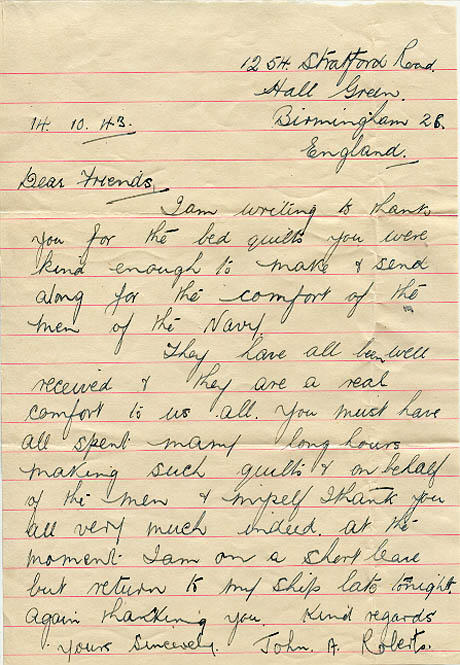 1254. Stratford Road.
Hall Green.
14. 10. 43. Birmingham 28.
England.
Dear Friends,
I am writing to thank
you for the bed quilts you were
kind enough to make & send
along for the comfort of the
men of the Navy.
They have all been well
received & they are a real
comfort to us all. You must have
all spent many long hours
making such quilts & on behalf
of the men & myself I thank you
all very much indeed. At the
moment I am on a short leave
but return to my ship late tonight.
Again thanking you. Kind regards
Yours Sincerely. John. A. Roberts.